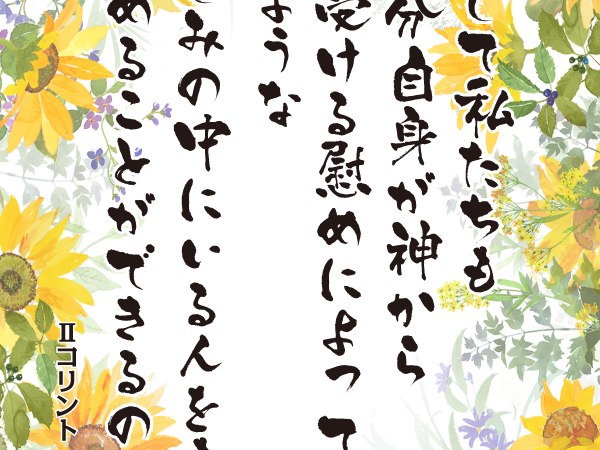 して私たちも
分自身が神から
受ける慰めによって
ような
みの中にいる人を
めることができるの
Ⅱコリント